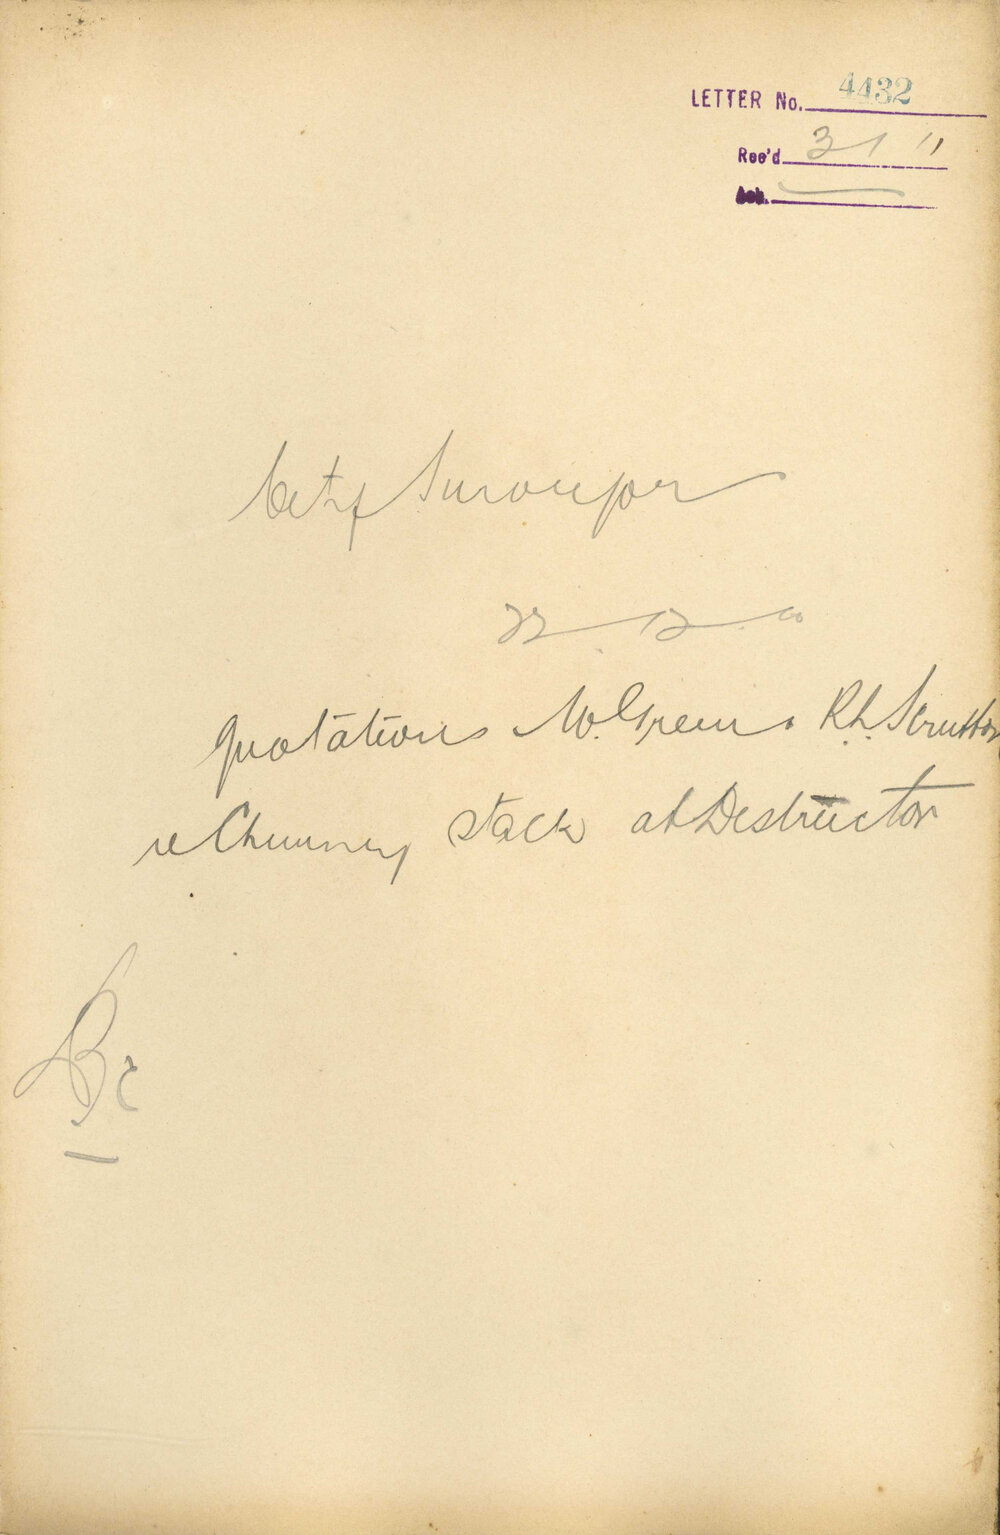 LETTER No. 4432
Rec'd 31 "
Ack.
City Surveyor
22.12.00
Quotations W. Green & R.L. Scrutton
re Chimney stack at Destructor